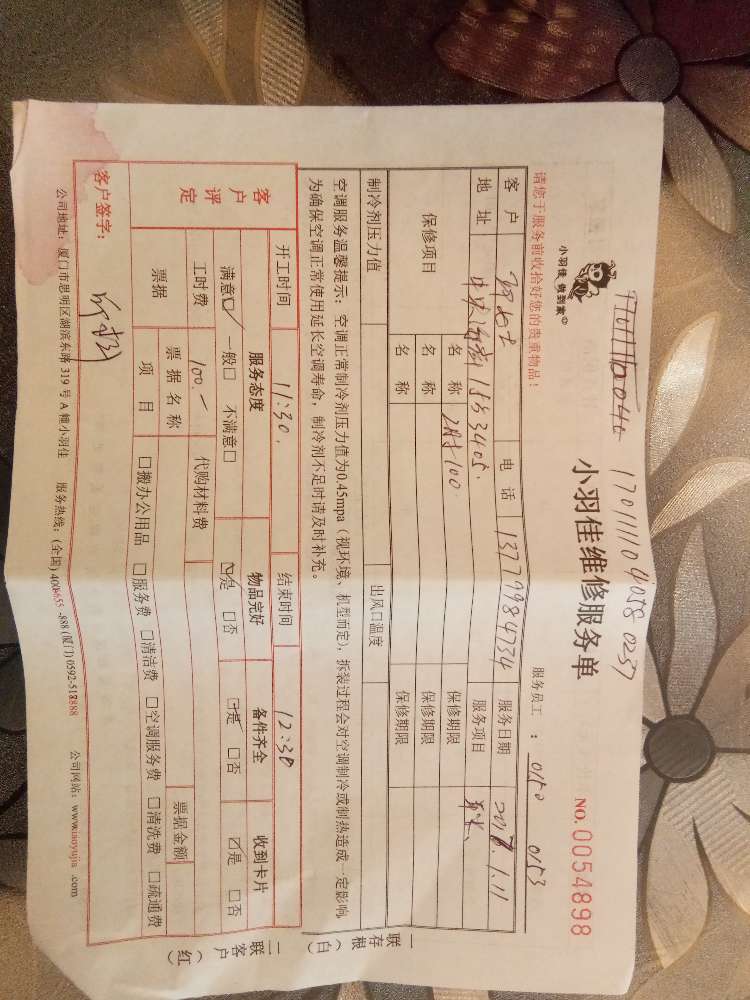 170111104058 0257
小羽佳 做到家
小羽佳维修服务单
服务员工： 0150 0153
NO.0054898
请您于服务前收拾好您的贵重物品！
客户 电话 13779984734 服务日期 2017.1.11
地址 3405. 服务项目
保修项目 名称 100 保修期限
名称 保修期限
名称 保修期限
制冷剂压力值 出风口温度
空调服务温馨提示：空调正常制冷剂压力值为0.45mpa（视环境、机型而定），拆装过程会对空调制冷或制热造成一定影响，
为确保空调正常使用延长空调寿命，制冷剂不足时请及时补充。
一联存根（白）
二联客户（红）
客户评定
开工时间 11:30. 结束时间 12:30
服务态度 物品完好 备件齐全 收到卡片
满意☑ 一般□ 不满意□ ☑是 □否 ☑是 □否 ☑是 □否
工时费 100.- 代购材料费
票据 票据名称 票据金额
项目 □搬办公用品 □服务费 □清洁费 □空调服务费 □清洗费 □疏通费
客户签字：
公司地址：厦门市思明区湖滨东路 319 号 A 幢小羽佳 服务热线：(全国) 400-655-888 (厦门) 0592-518888 公司网站：